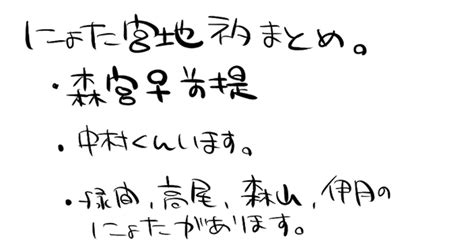 にょた宮地ネタまとめ。
・森宮♀前提
・中村くんいます。
・緑間,高尾,森山,伊月の
にょたがあります。